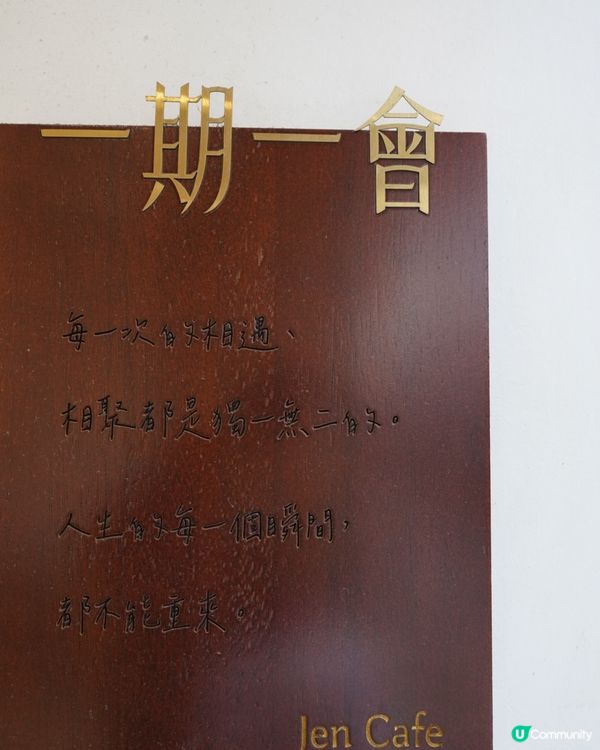 一期一會
每一次的相遇、
相聚都是獨一無二的。
人生的每一個瞬間，
都不能重來。
Jen Cafe
U Community